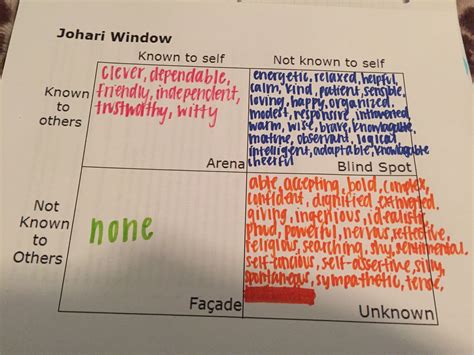 Johari Window
Known to self
Not known to self
Known
to
others
clever, dependable,
friendly, independent,
trustworthy, witty
Arena
energetic, relaxed, helpful,
calm, kind, patient, sensible,
loving, happy, organized,
modest, responsive, introverted
warm, wise, brave, knowlagable
mature, observant, logical
intelligent, adaptable, knowlagable
cheerful
Blind Spot
Not
Known
to
Others
none
Façade
able, accepting, bold, complex,
confident, dignified, extroverted,
giving, ingenious, idealistic
proud, powerful, nervous, reflective,
religious, searching, shy, sentimental,
self-concious, self-assertive, silly,
spontaneous, sympathetic, tense,
Unknown